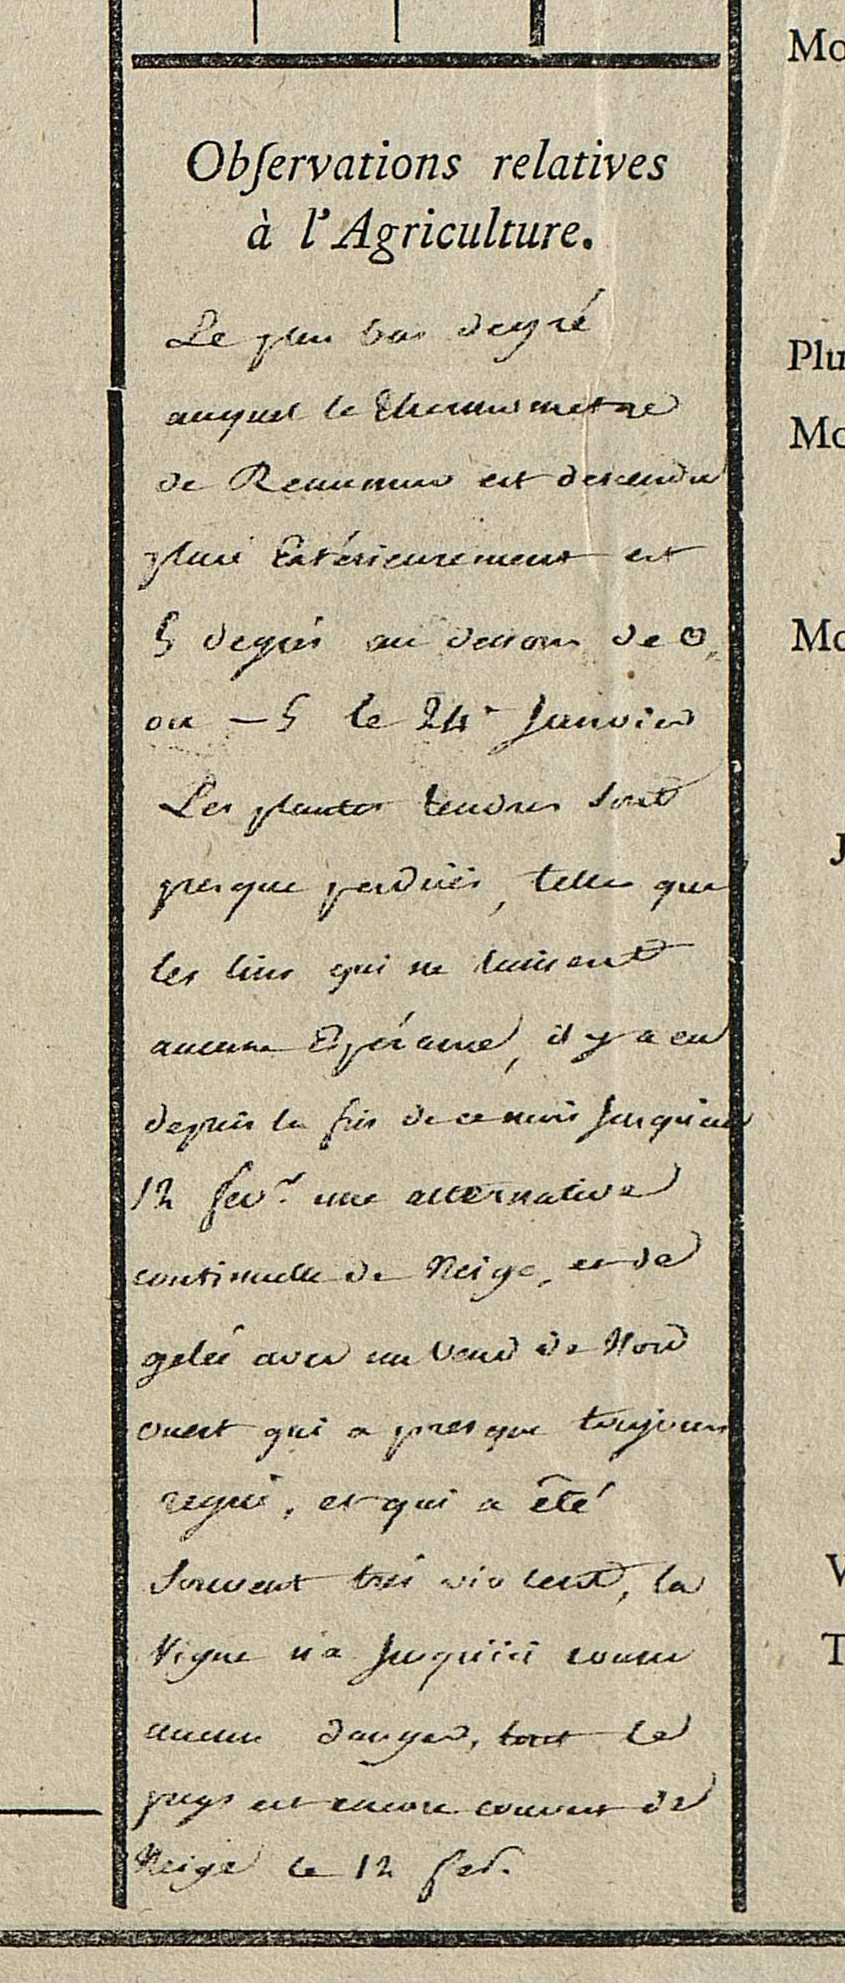 Obſervations relatives
à l'Agriculture.
Le plus bas degré
auquel le Thermometre
de Reaumur est descendu
placé Extérieurement est
5 degrés au dessous de 0,
ou – 5 le 24 Janvier
Les plantes tendres sont
presque perduës, telles que
les lins qui ne laissent
aucune Espérance, il y a eu
depuis la fin de ce mois Jusqu'au
12 fevr. une alternative
continuelle de Neige, et de
gelée avec un vent de Nord
ouest qui a presque toujours
regné, et qui a été
Souvent très violent, la
Vigne n'a Jusqu'ici couru
aucun danger, tout le
pays est encore couvert de
Neige le 12 fev.
Mo
Plu
Mo
Mo
J
V
T